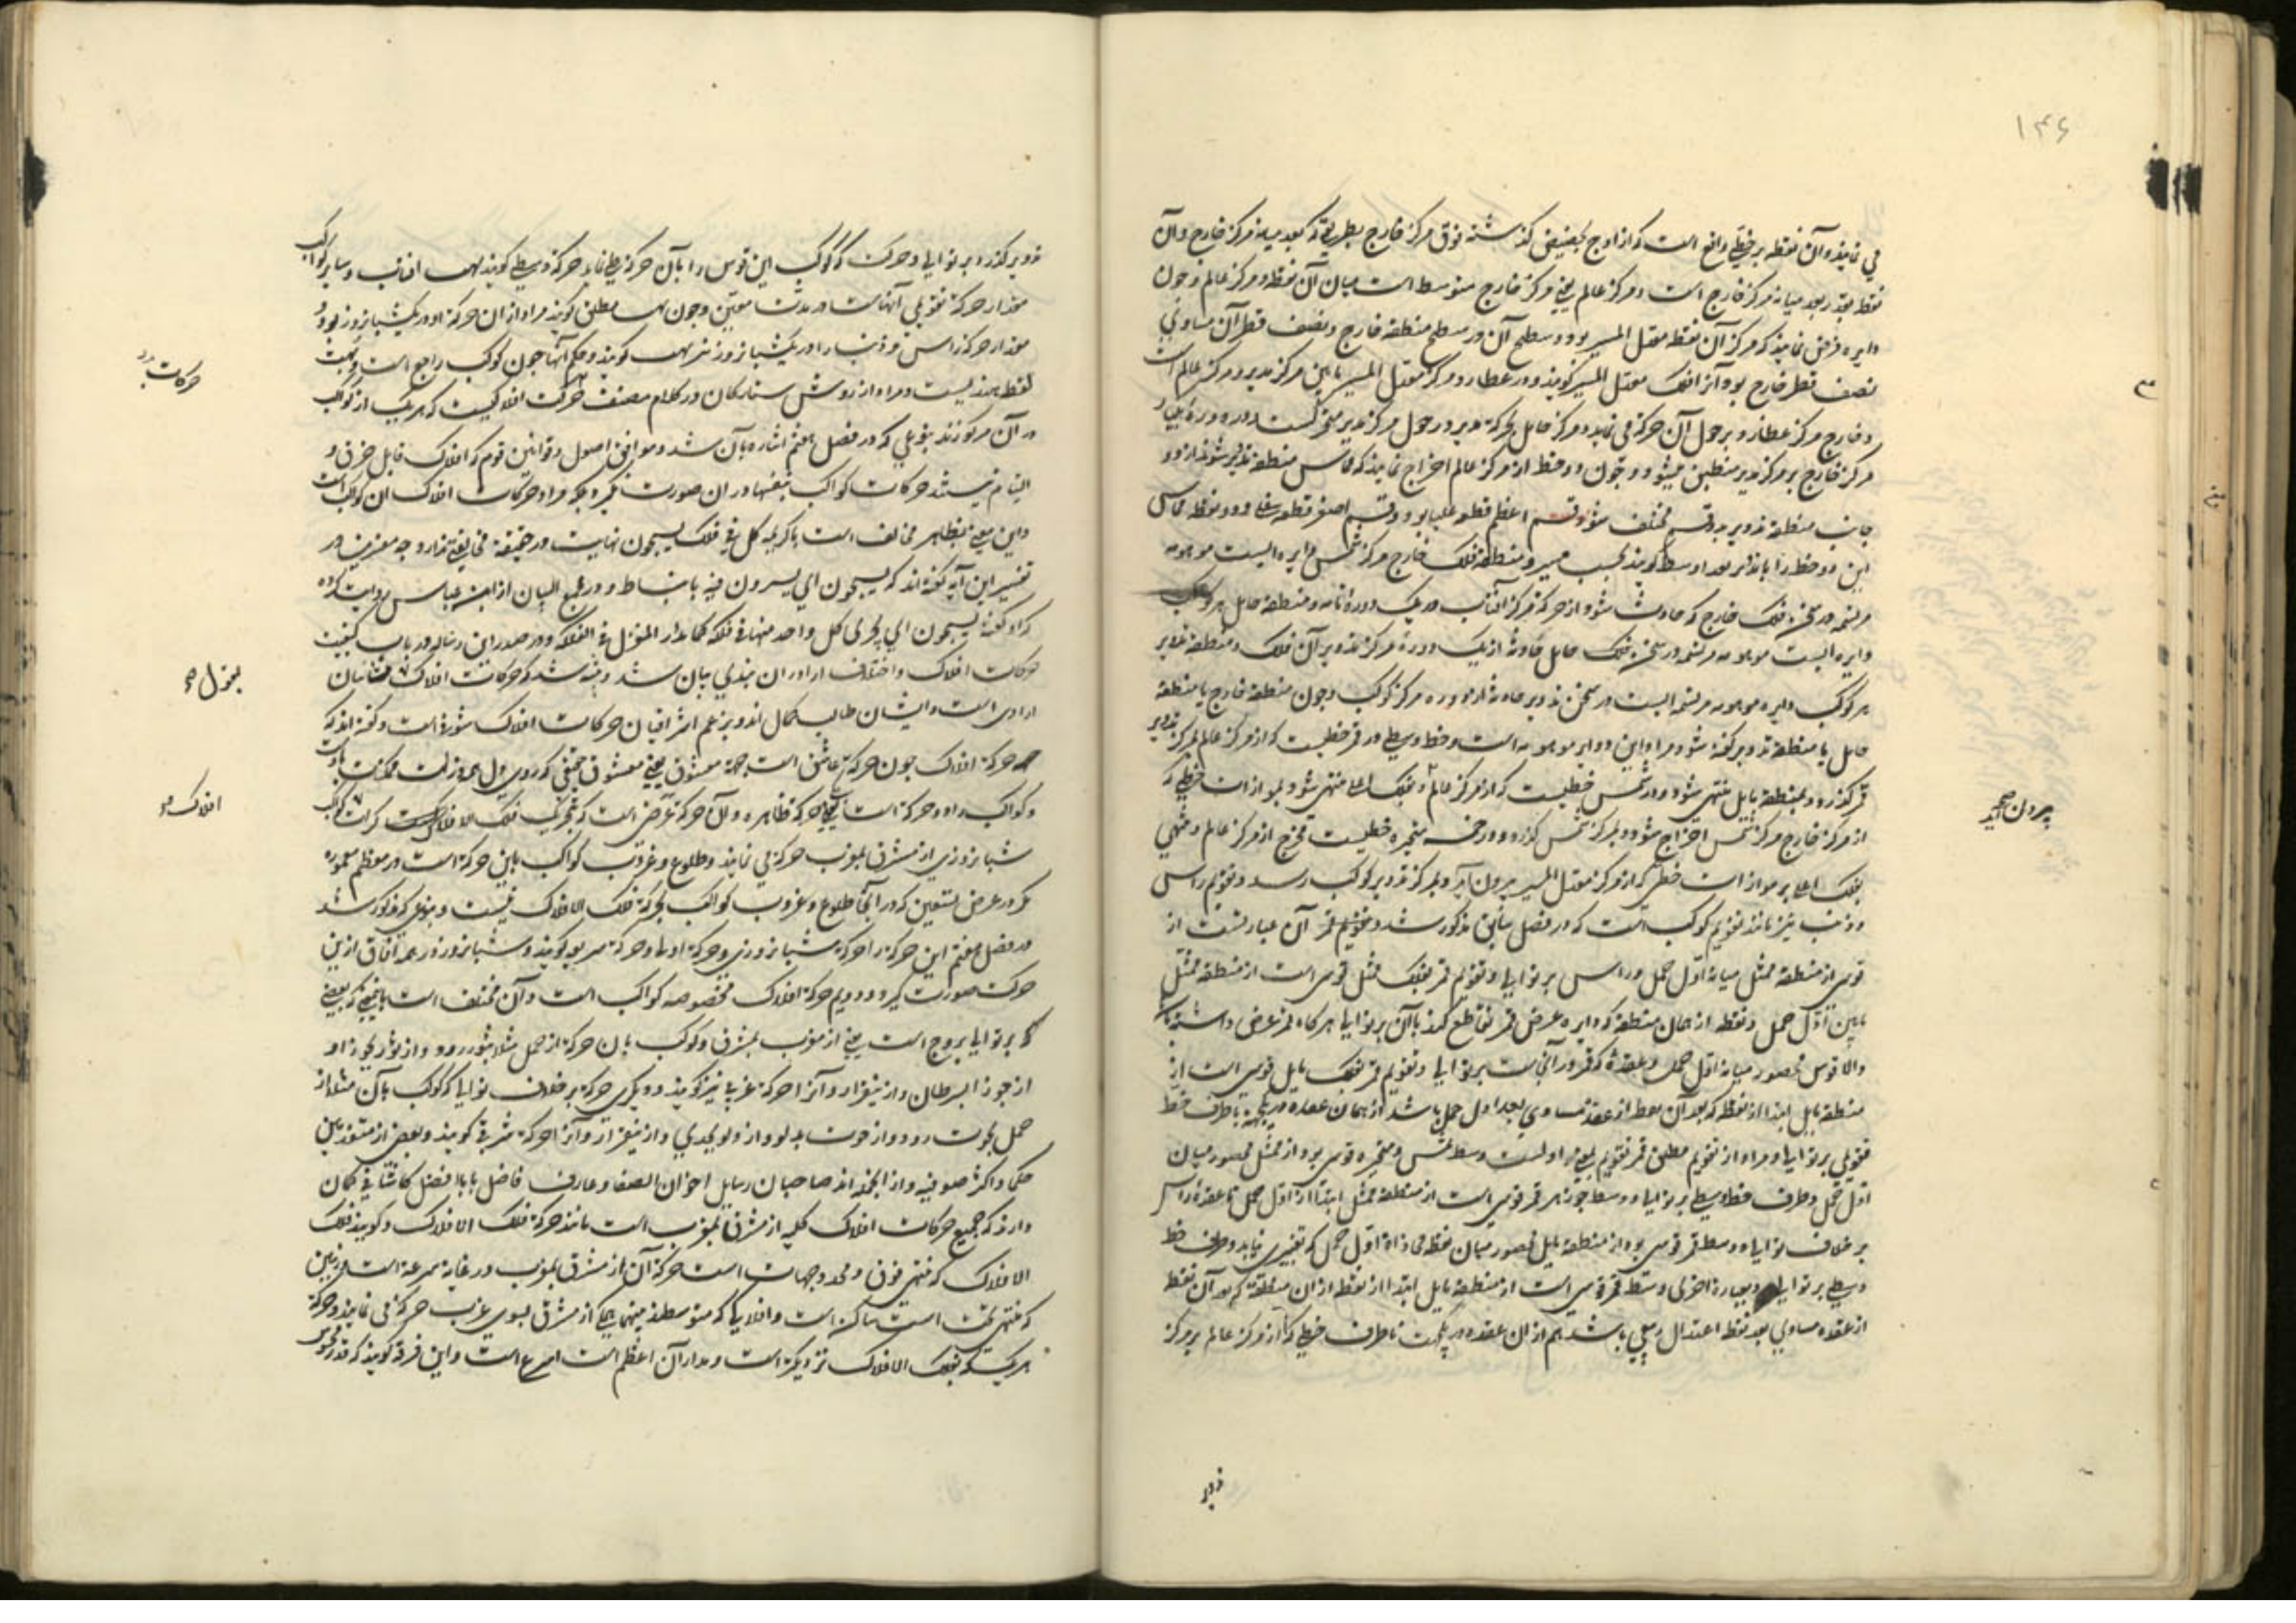 ۱۴۶
می نمایند و آن نقطه بر خطی واقع است که از اوج بحضیض گذشته فوق مرکز خارج بطریقی که بعد میانه مرکز خارج و آن
نقطه بقدر بعد میانه مرکز خارج است و مرکز عالم یعنی مرکز خارج متوسط است میان آن نقطه و مرکز عالم و چون
دایره فرض نمایند که مرکز آن نقطه معدل المسیر بود و سطح آن در سطح منطقه خارج و نصف قطر آن مساوی
نصف قطر خارج بود آنرا فلک معدل المسیر گویند و در عطارد مرکز معدل المسیر مابین مرکز مدیر و مرکز عالم است
و خارج مرکز عطارد بر حول آن حرکت می نماید و مرکز حامل بحرکت مدیر در حول مرکز مدیر متحرکست و در دوره یکبار
مرکز خارج بر مرکز مدیر منطبق میشود و چون دو خط از مرکز عالم اخراج نمایند که مماس منطقه تدویر شوند از دو
جانب منطقه تدویر بدو قسم مختلف شود قسم اعظم قطعه علیا بود و قسم اصغر قطعه سفلی و دو نقطه تماس
این دو خط را با تدویر بعد اوسط گویند بحسب مسیر و منطقه فلک خارج مرکز شمس دایره ایست موهومه
مرتسمه در سخن فلک خارج که حادث شود از حرکت مرکز آفتاب در یک دوره تامه و منطقه حامل هر کوکب
دایره ایست موهومه مرتسمه در سخن فلک حامل حادثه از یک دوره مرکز تدویر آن فلک و منطقه تدویر
هر کوکب دایره موهومه مرتسمه ایست در سخن تدویر حادثه از دوره مرکز کوکب و چون منطقه خارج یا منطقه
حامل یا منطقه تدویر گفته شود مراد این دوایر موهومه است و خط وسطی در قمر خطیست که از مرکز عالم بمرکز تدویر
قمر گذرد و بمنطقه مایل منتهی شود و در شمس خطیست که از مرکز عالم بفلک اعلی منتهی شود بموازات خطی که
از مرکز خارج مرکز شمس اخراج شود و بمرکز شمس گذرد و در خمسه متحیره خطیست مخرج از مرکز عالم و منتهی
بفلک اعلی بر موازات خطی که از مرکز معدل المسیر بیرون آید و بمرکز تدویر کوکب رسد و تقویم راس
و ذنب نیز مانند تقویم کوکب است که در فصل سابق مذکور شد و تقویم قمر آن عبارتست از
قوسی از منطقه ممثل میانه اول حمل و راس بر توالی و تقویم قمر بفلک ممثل قوسی است از منطقه ممثل
مابین اول حمل و نقطه از همان منطقه که دایره عرض قمر تقاطع کند با آن بر توالی هر گاه قمر عرض داشته باشد
والا قوس محصور میانه اول حمل و عقده که قمر در آنجاست بر توالی و تقویم قمر بفلک مایل قوسی است از
منطقه مایل ابتدا از نقطه که بعد آن نقطه از عقده مساوی بعد اول حمل باشد از همان عقده در یکجهه تا طرف خط
تقویمی بر توالی و مراد از تقویم مطلق قمر تقویم بمعنی اولست و وسط شمس و متحیره قوسی بود از ممثل محصور میان
اول حمل و طرف خط وسطی بر توالی و وسط جوزهر قمر قوسی است از منطقه ممثل ابتدا از اول حمل تا عقده راس
بر خلاف توالی و وسط قمر قوسی بود از منطقه مایل محصور میان نقطه محاذاة اول حمل که تغییر نیابد و طرف خط
وسطی بر توالی و بعبارة اخری وسط قمر قوسی است از منطقه مایل ابتدا از نقطه از ان منطقه که بعد آن نقطه
از عقده مساوی بعد نقطه اعتدال ربیعی باشد هم از ان عقده در یکجهت تا طرف خطی که از مرکز عالم بر مرکز
تدویر
بیرون آید
تدویر گذرد بر توالی و حرکت کوکب این قوس را بآن حرکت وسطی نماید حرکت وسطی گویند بهت آفتاب و سایر کواکب
مقدار حرکت تقویمی آنهاست در مدت معین و چون بهت مطلق گویند مراد از ان حرکت او در یکشبانروز بود و
مقدار حرکت راس و ذنب را در یکشبانروز نیز بهت گویند و حکم آنها چون کوکب راجع است و بهت
لفظ هندیست و مراد از روش ستارگان در کلام مصنف حرکت افلاکیست که هریک از کواکب
در آن مرکوزند بنوعی که در فصل هفتم اشاره بآن شد و موافق اصول و قوانین قوم که افلاک قابل خرق و
التیام نیستند حرکات کواکب بنفسها در ان صورت نگیرد بلکه مراد حرکات افلاک ان کواکب است
و این معنی بظاهر مخالف است با کریمه کل فی فلک یسبحون نهایت در حقیقه مخالفتی ندارد چه مفسرین در
تفسیر این آیه گفته اند که یسبحون ای یسیرون فیه بانبساط و در مجمع البیان از ابن عباس روایت کرده
که او گفته یسبحون ای یجری کل واحد منها فی فلکه کما یدار المغزل فی الفلکه و در صدر این رساله در باب کیفیت
حرکات افلاک و اختلاف ارا در ان نبذی بیان شد و بینه شد که حرکات افلاک مشائیان
ارادی است و ایشان طالب کمال اند و بزعم اشراقیان حرکات افلاک شوقی است و گفته اند که
حرکت افلاک چون حرکت عاشق است بجهة معشوق یعنی معشوق حقیقی که روی دل همه ذرات ممکنات باوست
و کواکب را دو حرکت است یکی حرکت ظاهره و آن حرکت عرضی است که بتحریک فلک الافلاک است کرات کواکب
شبانروزی از مشرق بمغرب حرکت می نمایند و طلوع و غروب کواکب باین حرکت است در معظم معموره
مگر در عرض تسعین که در آنجا طلوع و غروب کواکب بحرکت فلک الافلاک نیست و بنوعی که مذکور شد
در فصل هفتم این حرکت را حرکت شبانروزی و حرکت اولی و حرکت سریعه گویند و شبانروز در همه آفاق از این
حرکت صورت گیرد و دویم حرکت افلاک مخصوصه کواکب است و آن مختلف است باینمعنی که بعضی
بر توالی بروج است یعنی از مغرب بمشرق و کوکب بان حرکت از حمل مثلا بثور رود و از ثور بجوزا و
از جوزا بسرطان و از نیقرار و آنرا حرکت غربیه نیز گویند و دیگری حرکت بر خلاف توالی که کوکب بآن مثلا از
حمل بحوت رود و از حوت بدلو و از دلو بجدی و از نیقرار و آنرا حرکت شرقی گویند و بعضی از متقدمین
حکما و اکثر صوفیه و از انجمله اند صاحبان رسایل اخوان الصفا و عارف فاضل بابا افضل کاشانی گمان
دارند که جمیع حرکات افلاک کلیه از مشرق بمغرب است مانند حرکت فلک الافلاک و گویند فلک
الافلاک که منتهی فوق و محدد جهات است حرکت آن از مشرق بمغرب در غایة سرعة است و زمین
که منتهی تحت است ساکن است و افلاکی که متوسطند بینهما همگی از مشرق بسوی غرب حرکت می نمایند و حرکت
هریک که بفلک الافلاک نزدیکتر است و مدار آن اعظم است اسرع است و این فرقه گویند که قدر قوس
حرکات
بمغزل صح
افلاک